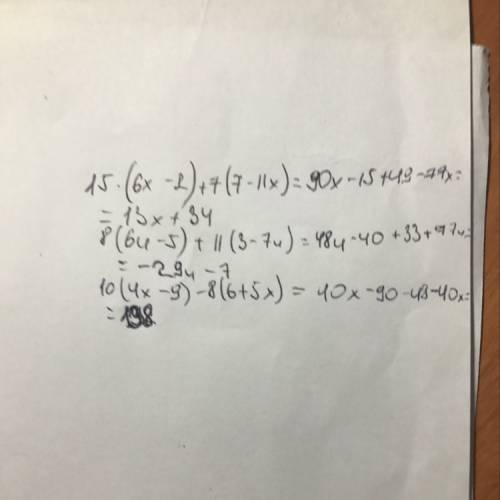 15·(6x-1)+7(7-11x)=90x-15+49-77x=
=13x+34
8(6u-5)+11(3-7u)=48u-40+33+77u=
=-29u-7
10(4x-9)-8(6+5x)=40x-90-48-40x=
=198